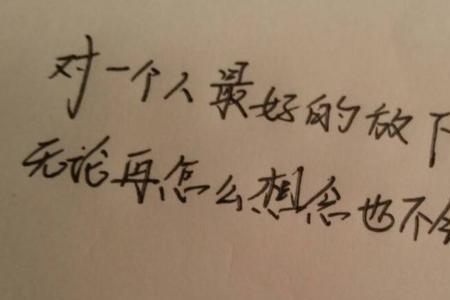 对一个人最好的放下
无论再怎么想念也不会